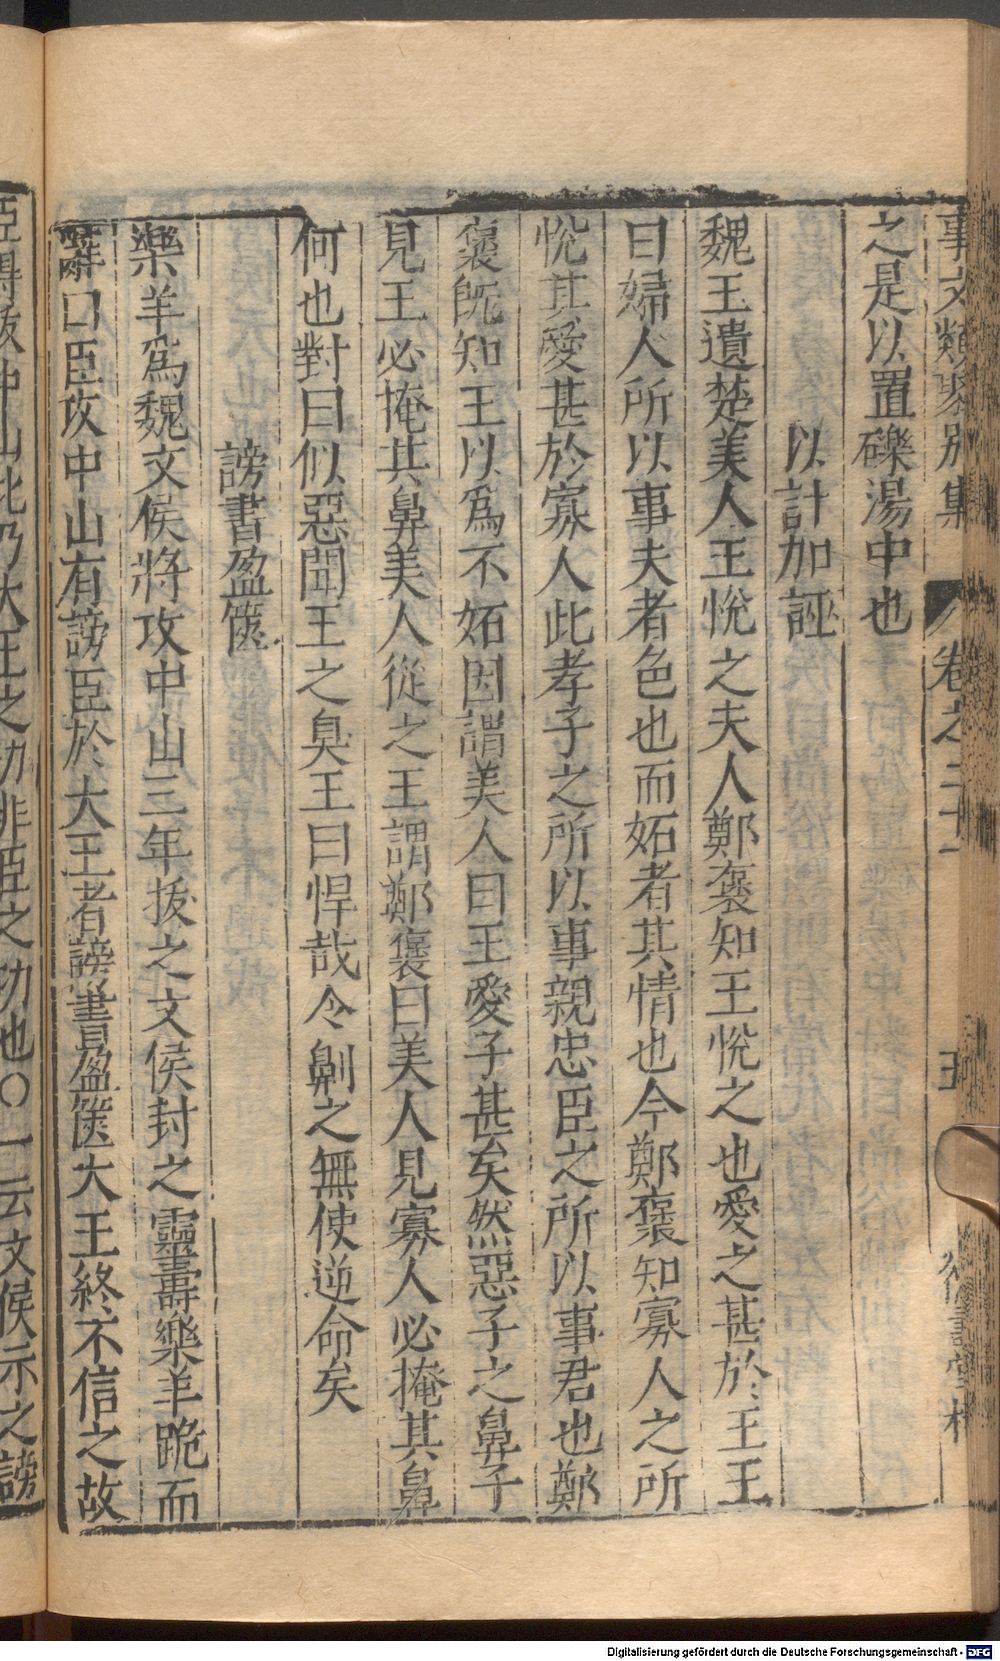 事文類聚別集 卷之二十一 五
之是以置礫湯中也
以計加誣
魏王遺楚美人王悅之夫人鄭褒知王悅之也愛之甚於王王
曰婦人所以事夫者色也而妬者其情也今鄭褒知寡人之所
悅其愛甚於寡人此孝子之所以事親忠臣之所以事君也鄭
褒旣知王以爲不妬因謂美人曰王愛子甚矣然惡子之鼻子
見王必掩其鼻美人從之王謂鄭褒曰美人見寡人必掩其鼻
何也對曰似惡聞王之臭王曰悍哉令劓之無使逆命矣
謗書盈篋
樂羊爲魏文侯將攻中山三年拔之文侯封之靈壽樂羊跪而
辭曰臣攻中山有謗臣於大王者謗書盈篋大王終不信之故
臣得拔中山此乃大王之功非臣之功也〇一云文侯示之謗
Digitalisierung gefördert durch die Deutsche Forschungsgemeinschaft - DFG